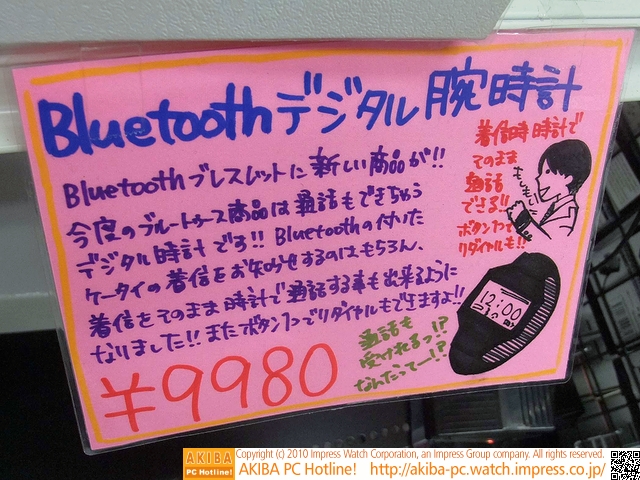 Bluetoothデジタル腕時計
Bluetoothブレスレットに新しい商品が!!
今度のブルートゥース商品は通話もできちゃう
デジタル時計です!! Bluetoothの付いた
ケータイの着信をお知らせするのはもちろん、
着信をそのまま時計で通話する事も出来るように
なりました!! またボタン1つでリダイヤルもできますよ!!
¥9980
着信時時計で
そのまま
通話
できる!!
ボタン1つで
リダイヤルも!!
もしもし
12:00
通話も
受けれるっ!?
なんだってー!?
AKIBA
PC Hotline!
Copyright (c) 2010 Impress Watch Corporation, an Impress Group company. All rights reserved.
AKIBA PC Hotline! http://akiba-pc.watch.impress.co.jp/